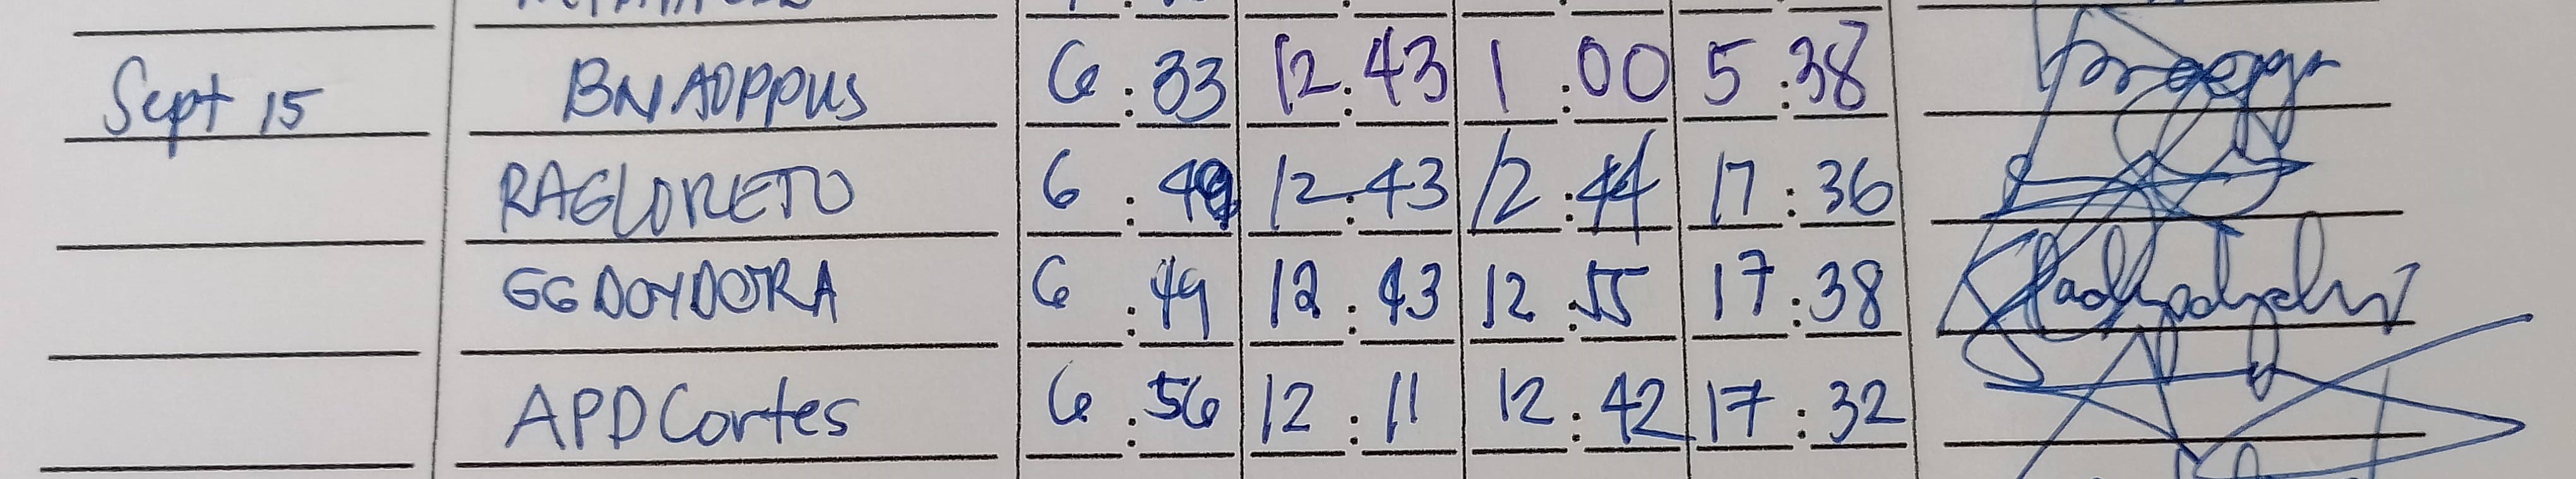 Sept 15 BNADPPUS 6:33 12:43 1:00 5:38
RAGLORETO 6:49 12:43 12:44 17:36
GGDOYDORA 6:49 12:43 12:55 17:38
APDCortes 6:56 12:11 12:42 17:32